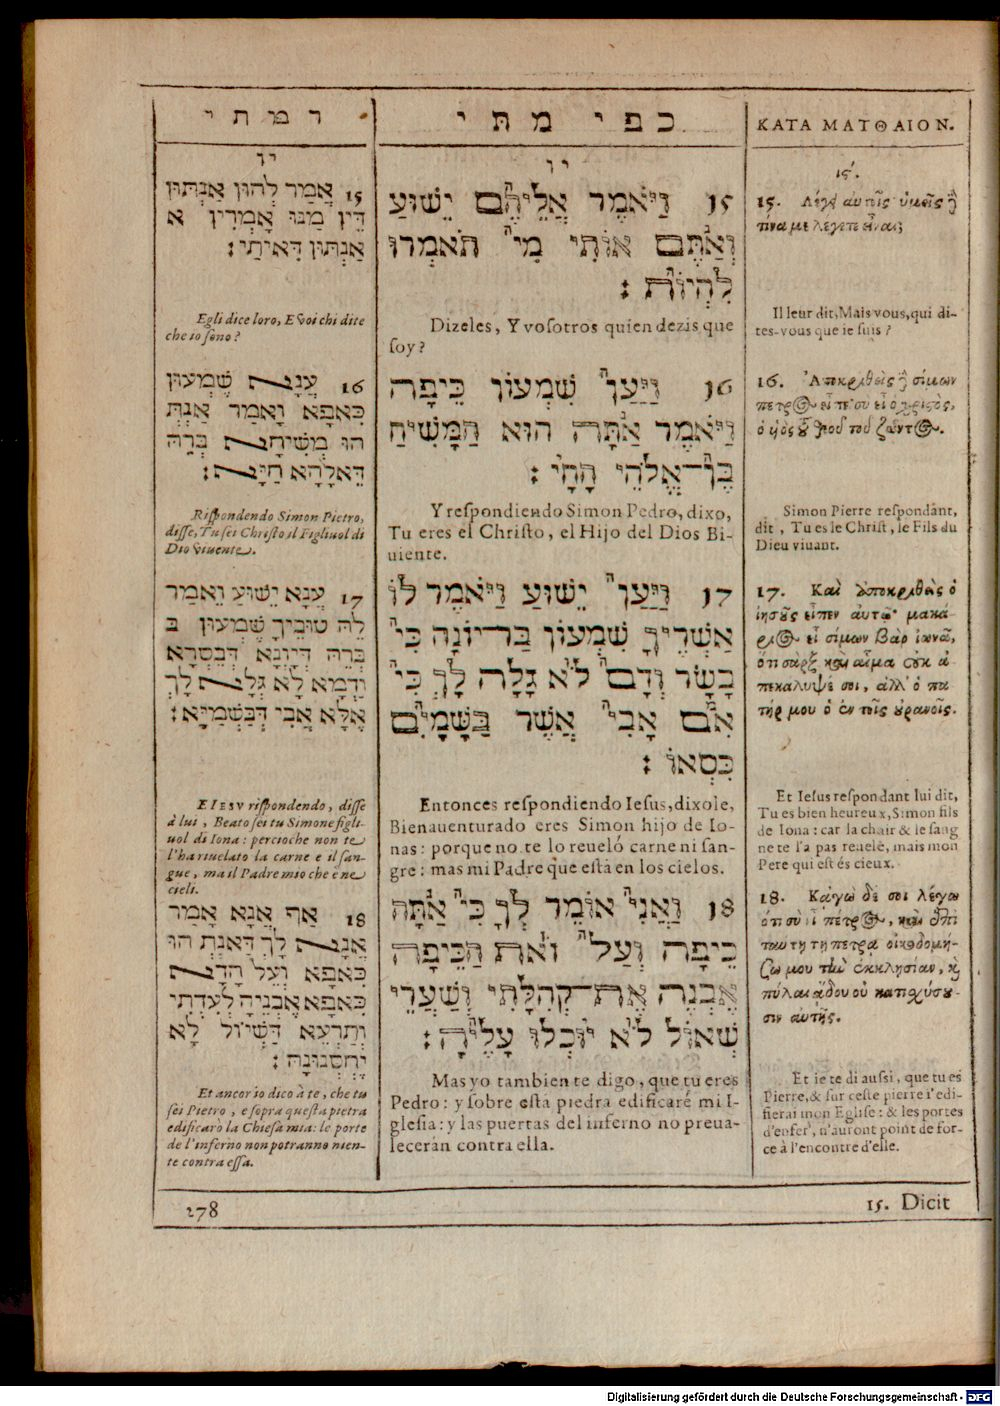 דמתי
יו
15 אֲמַר לְהוּן אַנְתּוּן
דֵּין מַנּוּ אָמְרִין א
אַנְתּוּן דְּאִיתַי׃
Egli dice loro, E voi chi dite
che io sono?
16 עֲנָא שֶׁמְעוּן
כִּאפָא וֶאמַר אַנְתְּ
הוּ מְשִׁיחָא בְּרֵהּ
דַּאלָהָא חַיָּא׃
Rispondendo Simon Pietro,
disse, Tu sei Christo il Figliuol di
Dio vivente.
17 עֲנָא יֵשׁוּעַ וֵאמַר
לֵהּ טוּבֵיךְ שֶׁמְעוּן ב
בְּרֵהּ דְּיָוְנָא דְּבֶסְרָא
וַדְמָא לָא גְּלָא לָךְ
אֶלָּא אֲבִי דְּבַשְׁמַיָּא׃
E IESV rispondendo, disse
à lui, Beato sei tu Simone figli-
uol di Iona: percioche non te
l'ha riuelato la carne e il san-
gue, ma il Padre mio che è ne
cieli.
18 אַף אֶנָא אָמַר
אֲנָא לָךְ דְּאַנְתְּ הוּ
כִּאפָא וְעַל הָדֵא
כִּאפָא אֶבְנֵיהּ לְעִדְתִּי
וְתַרְעֵא דַּשְׁיוּל לָא
יַחְסְנוּנָהּ׃
Et ancor io dico à te, che tu
sei Pietro, e sopra questa pietra
edificarò la Chiesa mia: le porte
de l'inferno non potranno nien-
te contra essa.
כפי מתי
יו
15 וַיֹּאמֶר אֲלֵיהֶם יֵשׁוּעַ
וְאַתֶּם אוֹתִי מִי תֹּאמְרוּ
לִהְיוֹת׃
Dizeles, Y vosotros quien dezis que
soy?
16 וַיַּעַן שִׁמְעוֹן כֵּיפָה
וַיֹּאמֶר אַתָּה הוּא הַמָּשִׁיחַ
בֶּן־אֱלֹהֵי הָחָי׃
Y respondiendo Simon Pedro, dixo,
Tu eres el Christo, el Hijo del Dios Bi-
uiente.
17 וַיַּעַן יֵשׁוּעַ וַיֹּאמֶר לוֹ
אַשְׁרֶיךָ שִׁמְעוֹן בַּר־יוֹנָה כִּי
בָשָׂר וְדָם לֹא גָלָה לָךְ כִּי
אִם אָבִי אֲשֶׁר בַּשָּׁמָיִם
כִּסְאוֹ׃
Entonces respondiendo Iesus, dixole,
Bienauenturado eres Simon hijo de Io-
nas: porque no te lo reueló carne ni san-
gre: mas mi Padre que está en los cielos.
18 וַאֲנִי אוֹמֵר לְךָ כִּי אַתָּה
כֵיפָה וְעַל זֹאת הַכֵּיפָה
אֶבְנֶה אֶת־קְהִלָּתִי וְשַׁעֲרֵי
שְׁאוֹל לֹא יוּכְלוּ עָלֶיהָ׃
Mas yo tambien te digo, que tu eres
Pedro: y sobre esta piedra edificaré mi I-
glesia: y las puertas del infierno no preua-
leceran contra ella.
ΚΑΤΑ ΜΑΤΘΑΙΟΝ.
ις΄.
15. Λέγει αὐτοῖς ὑμεῖς ἢ
τίνα με λέγετε εἶναι;
Il leur dit, Mais vous, qui di-
tes-vous que ie suis?
16. Ἀποκριθεὶς ἢ σίμων
πετρος εἶπε· σὺ εἶ ὁ χριστὸς,
ὁ υἱὸς τοῦ θεοῦ τοῦ ζῶντος.
Simon Pierre respondant,
dit, Tu es le Christ, le Fils du
Dieu viuant.
17. Καὶ ἀποκριθεὶς ὁ
ἰησοῦς εἶπεν αὐτῷ· μακά-
ριος εἶ σίμων βὰρ ἰωνᾶ,
ὅτι σὰρξ καὶ αἷμα οὐκ ἀ-
πεκάλυψέ σοι, ἀλλ' ὁ πα
τήρ μου ὁ ἐν τοῖς οὐρανοῖς.
Et Iesus respondant lui dit,
Tu es bien heureux, Simon fils
de Iona: car la chair & le sang
ne te l'a pas reuelé, mais mon
Pere qui est és cieux.
18. Κἀγὼ δὲ σοι λέγω
ὅτι σὺ εἶ πέτρος, καὶ ἐπὶ
ταύτῃ τῇ πέτρᾳ οἰκοδομή-
σω μου τὴν ἐκκλησίαν, καὶ
πύλαι ᾅδου οὐ κατισχύσου-
σιν αὐτῆς.
Et ie te di aussi, que tu es
Pierre, & sur ceste pierre i'edi-
fierai mon Eglise: & les portes
d'enfer, n'auront point de for-
ce à l'encontre d'elle.
278
15. Dicit
Digitalisierung gefördert durch die Deutsche Forschungsgemeinschaft - DFG